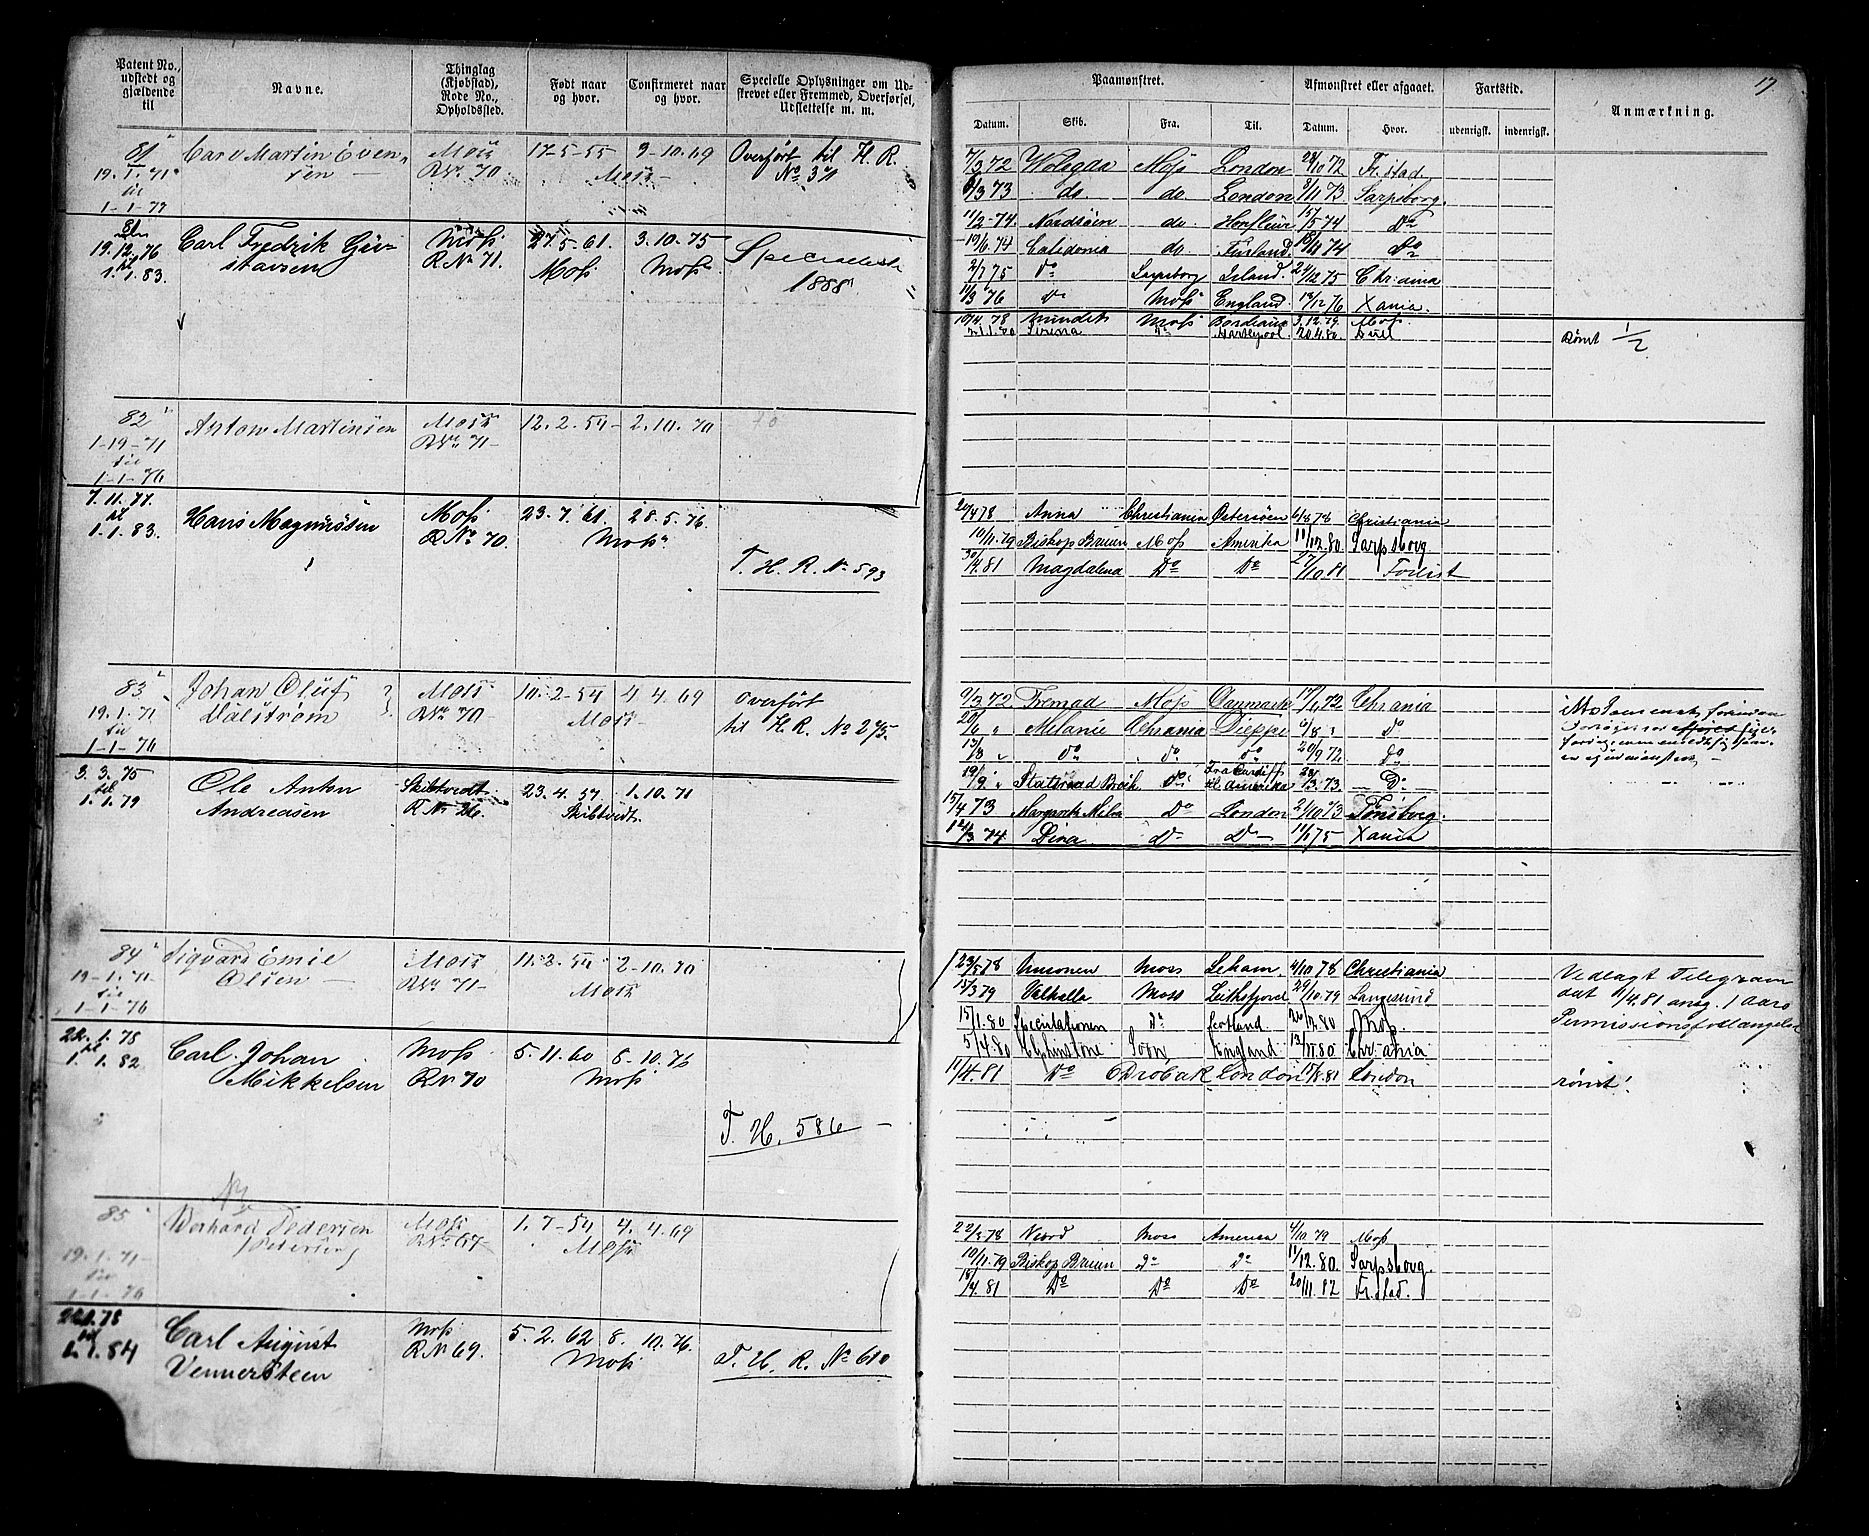 Patent No., udstedt og gjældende til
Navne.
Thinglag (Kjøbstad), Rode No., Opholdssted.
Født naar og hvor.
Confirmeret naar og hvor.
Specielle Oplysninger om Udskrevet eller Fremmed, Overførsel, Udslettelse m. m.
81
Carl Martin Even-
sen
19.1.71 til 1-1-77
Moss
R.No. 70
17-5-55
9-10-69
Moss
Overført til H. R.
No 37
19.12.76
til
1.1.83.
Carl Fredrik Gu-
stavsen
Moss
R No 71.
27.5.61.
Moss
3.10.75
Moss
1888
82
1-19-71
til
1-1-76
Anton Martinsen
Moss
R.No. 71-
12.2.54-
2.10.70
7.11.77
til
1.1.83.
Hans Magnussen
Moss
R No 70.
23.7.61.
28.5.76.
Moss
T. H. R. No 593
83
19.1.71
til
1-1-76
Johan Oluf
Dalstrøm
Moss
R.No. 70-
10.2-54
4.4.69
Moss-
overført
til H. R. No 275.
3.3.75
til
1.1.79
Ole Anton
Andreasen
Skibtvedt.
R. No 26.
23.4.57
1.10.71
Skibtvedt.
84
19-1.71-
til
1-1-76
Sigvard Emil
Olsen
Moss
R.No. 71-
11.2.54
2-10.70
Moss
22.1.78
til
1.1.82
Carl Johan
Mikkelsen
Moss
R No 70
5.11.60
8.10.76
Moss
T. H. 586
85
19.1.71-
til
1-1-76
Bernhard Pedersen
Moss
R.No. 67-
1.7-54
4.4.69
Moss
til
1.1.84
Carl August
Vennersteen
Moss
R No 69.
5.2.62
8.10.76.
Moss
T. H. R. No 610
17
Paamønstret.
Afmønstret eller afgaaet.
Fartstid.
Anmærkning.
Datum.
Skib.
Fra.
Til.
Datum.
Hvor.
udenrigsk.
indenrigsk.
7/3 72 Wolegda Moss London 28/10 72 Fr.stad
6/3 73 do. do London 9/11 73 Sarpsborg.
11/2-74. Nordsøen do Honfleur 15/5 74 Do
10/6.74 Caledonia do Finland 18/11 74 Do
2/7 75 Do Sarpsborg Island. 24/12 75 Chr:ania
11/3 76 Do Moss England. 19/12 76 Xania.
10/4.78 Moss Bordeaux 3.12.79. Moss.
Sirena Do Hartlepool. 20.4.80.
Rømt 1/2
20/4 78 Anna Christiania Østersøen 6/8 78 Christiania
10/11.79 Biskop Bruun Moss Amerika 11/12.80. Sarpsborg
30/4.81 Magdalena Do Do 27/10 81 Forlist
9/3 72 Fremad Moss Danmark 17/6 72 Chrania
20/6 " Melanie Chrania Dieppe 6/8 " do
13/8 " do do do 20/9 72 do
19/9 " Statsraad Broch do Fra Cardiff
til Amerika 28/3.73. Do
15/4 73 Do London 21/10 73 Tønsberg.
12/3 74 Dina Do Do 11/1 75 Xania
23/5 78 Unionen Moss 4/10.78 Christiania
15/3 79 Valhalla Moss 29/10.79 Langesund
15/1.80 Speculationen Do Scotland Moss.
5/4.80 Elphinstone England 13/11.80 Chr:ania
11/4.81 Do Drøbak London 17/8.81 London
Vedlagt Telegram
dat 11/4.81 ang. 1 Aars
Permissionsforlængelse
rømt!
22/2.78 Njord Moss America 4/10.79 Moss
10/11.79 Biskop Bruun Do Do 11/12.80. Sarpsborg.
18/4.81 Do Do Do 20/11.82 Fr.stad.